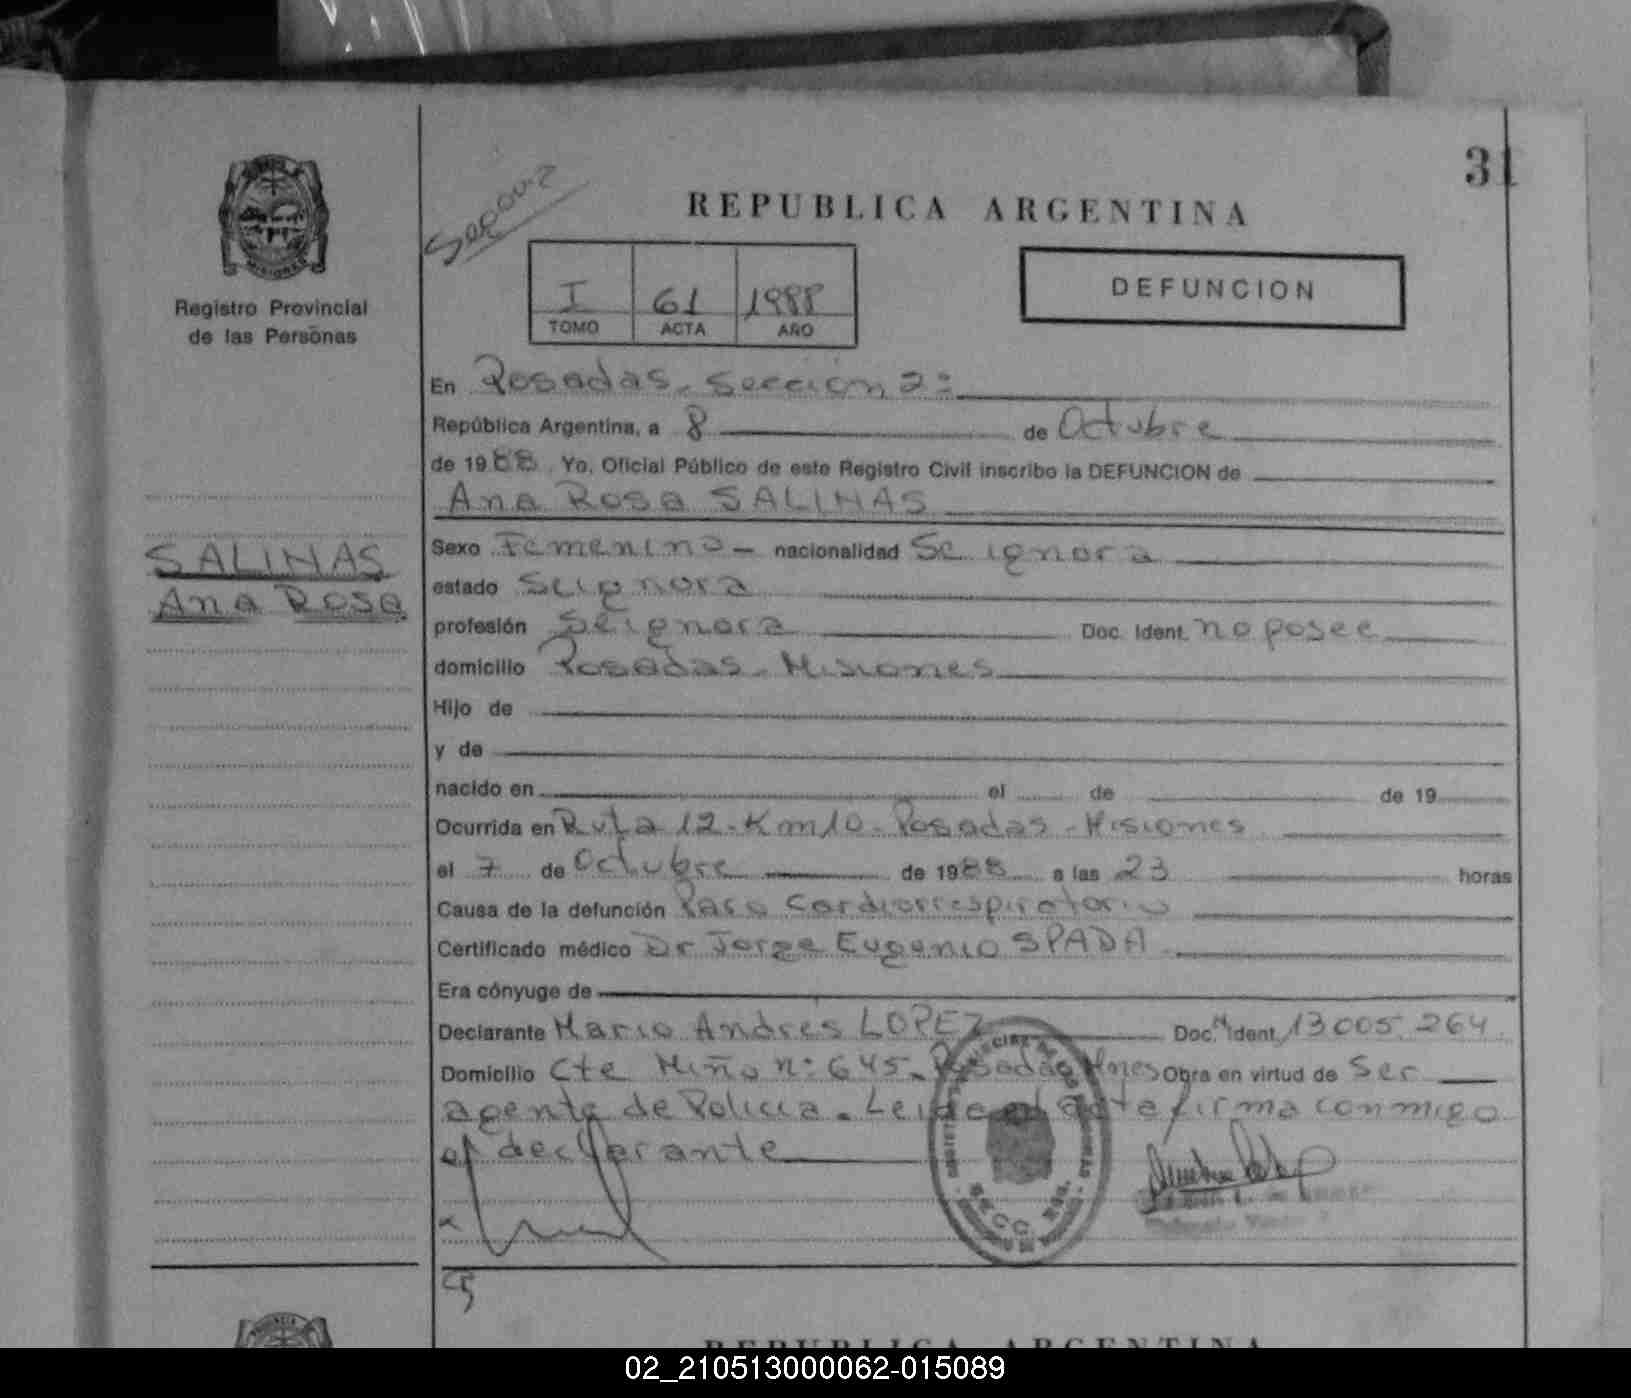 31
REPUBLICA ARGENTINA
MISIONES
Registro Provincial
de las Personas
I 61 1988
TOMO ACTA AÑO
DEFUNCION
En Posadas. Sección 2=
República Argentina, a 8 de Octubre
de 1988. Yo, Oficial Público de este Registro Civil inscribo la DEFUNCION de
Ana Rosa SALINAS
SALINAS
Ana Rosa
Sexo Femenino - nacionalidad Se ignora
estado Se ignora
profesión Se ignora Doc. Ident. no posee
domicilio Posadas - Misiones
Hijo de
y de
nacido en el de de 19
Ocurrida en Ruta 12 - Km 10 - Posadas - Misiones
el 7 de Octubre de 1988 a las 23 horas
Causa de la defunción Paro Cardiorrespiratorio
Certificado médico Dr Jorge Eugenio SPADA
Era cónyuge de
Declarante Mario Andres LOPEZ Doc. Ident. 13005.264
Domicilio Cte Miño n: 645. Posadas Mnes Obra en virtud de Ser
agente de Policia. Leida el acta firma conmigo
el declarante
REPUBLICA ARGENTINA
02_210513000062-015089